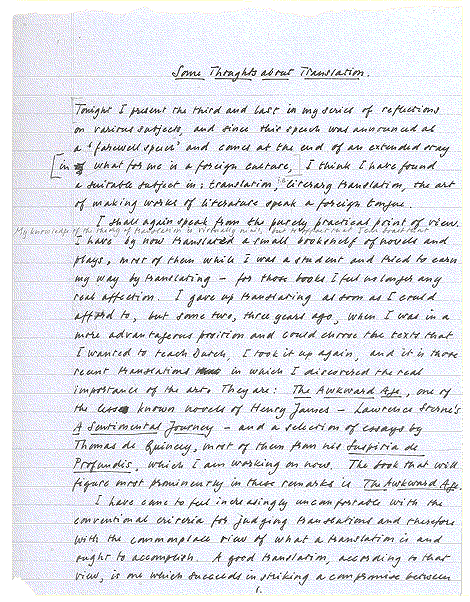 Some Thoughts about Translation.
Tonight I present the third and last in my series of reflections
on various subjects, and since this speech was announced as
a "farewell speech" and comes at the end of an extended stay
[in what for me is a foreign culture,] I think I have found
a suitable subject in: translation, literary translation, the art
of making works of literature speak a foreign tongue.
I shall again speak from the purely practical point of view.
My knowledge of the theory of translation is virtually nil, but
I have by now translated a small bookshelf of novels and
plays, most of them while I was a student and tried to earn
my way by translating – for those books I feel no longer any
real affection. I gave up translating as soon as I could
afford to, but some two, three years ago, when I was in a
more advantageous position and could choose the texts that
I wanted to teach Dutch, I took it up again, and it is those
recent translations in which I discovered the real
importance of the art. They are: The Awkward Age, one of
the less known novels of Henry James – Lawrence Sterne's
A Sentimental Journey – and a selection of essays by
Thomas de Quincey, most of them from his Suspiria de
Profundis, which I am working on now. The book that will
figure most prominently in these remarks is The Awkward Age.
I have come to feel increasingly uncomfortable with the
conventional criteria for judging translations and therefore
with the commonplace view of what a translation is and
ought to accomplish. A good translation, according to that
view, is one which succeeds in striking a compromise between
1.